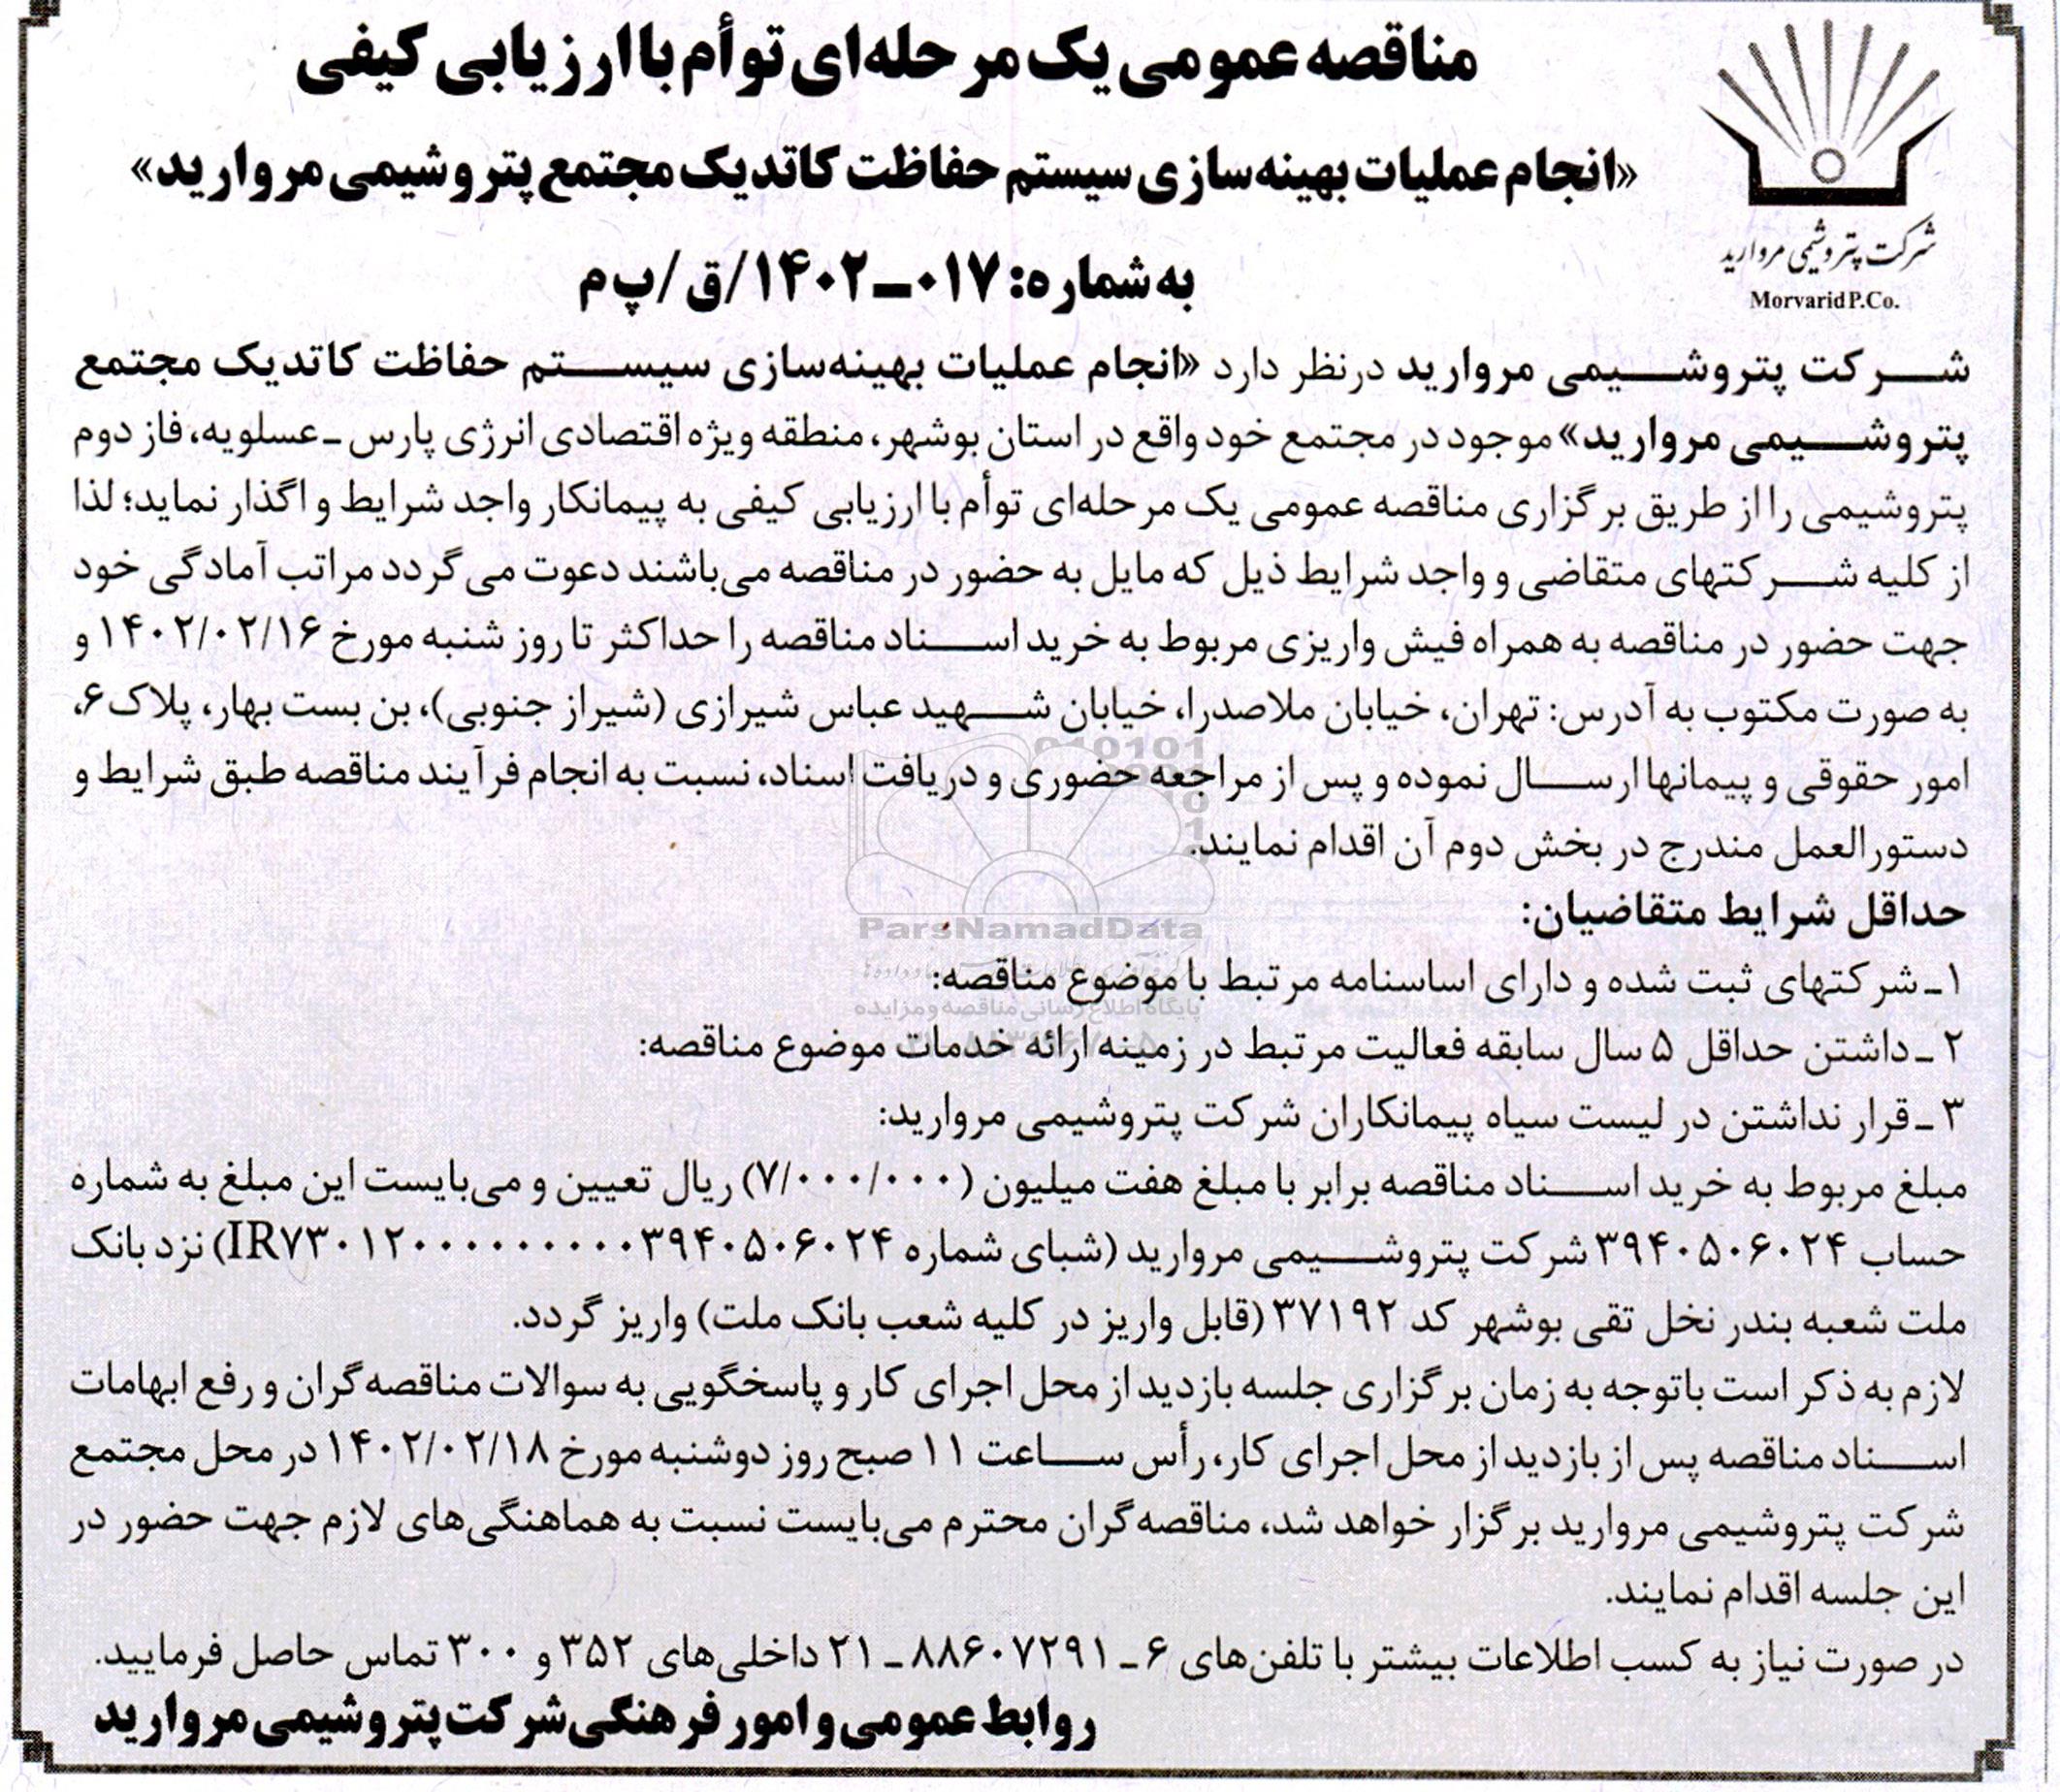 مناقصه عمومی یک مرحله‌ای توأم با ارزیابی کیفی
«انجام عملیات بهینه‌سازی سیستم حفاظت کاتدیک مجتمع پتروشیمی مروارید»
به شماره: ۰۱۷-۱۴۰۲/ق/پ م
شرکت پتروشیمی مروارید
Morvarid P.Co.
شرکت پتروشیمی مروارید درنظر دارد «انجام عملیات بهینه‌سازی سیستم حفاظت کاتدیک مجتمع
پتروشیمی مروارید» موجود در مجتمع خود واقع در استان بوشهر، منطقه ویژه اقتصادی انرژی پارس ـ عسلویه، فاز دوم
پتروشیمی را از طریق برگزاری مناقصه عمومی یک مرحله‌ای توأم با ارزیابی کیفی به پیمانکار واجد شرایط واگذار نماید؛ لذا
از کلیه شرکتهای متقاضی و واجد شرایط ذیل که مایل به حضور در مناقصه می‌باشند دعوت می‌گردد مراتب آمادگی خود
جهت حضور در مناقصه به همراه فیش واریزی مربوط به خرید اسناد مناقصه را حداکثر تا روز شنبه مورخ ۱۴۰۲/۰۲/۱۶ و
به صورت مکتوب به آدرس: تهران، خیابان ملاصدرا، خیابان شهید عباس شیرازی (شیراز جنوبی)، بن بست بهار، پلاک ۶،
امور حقوقی و پیمانها ارسال نموده و پس از مراجعه حضوری و دریافت اسناد، نسبت به انجام فرآیند مناقصه طبق شرایط و
دستورالعمل مندرج در بخش دوم آن اقدام نمایند.
ParsNamadData
پایگاه اطلاع رسانی مناقصه و مزایده
حداقل شرایط متقاضیان:
۱ـ شرکتهای ثبت شده و دارای اساسنامه مرتبط با موضوع مناقصه:
۲ـ داشتن حداقل ۵ سال سابقه فعالیت مرتبط در زمینه ارائه خدمات موضوع مناقصه:
۳ـ قرار نداشتن در لیست سیاه پیمانکاران شرکت پتروشیمی مروارید:
مبلغ مربوط به خرید اسناد مناقصه برابر با مبلغ هفت میلیون (۷/۰۰۰/۰۰۰) ریال تعیین و می‌بایست این مبلغ به شماره
حساب ۳۹۴۰۵۰۶۰۲۴ شرکت پتروشیمی مروارید (شبای شماره IR۷۳۰۱۲۰۰۰۰۰۰۰۰۰۰۳۹۴۰۵۰۶۰۲۴) نزد بانک
ملت شعبه بندر نخل تقی بوشهر کد ۳۷۱۹۲ (قابل واریز در کلیه شعب بانک ملت) واریز گردد.
لازم به ذکر است باتوجه به زمان برگزاری جلسه بازدید از محل اجرای کار و پاسخگویی به سوالات مناقصه‌گران و رفع ابهامات
اسناد مناقصه پس از بازدید از محل اجرای کار، رأس ساعت ۱۱ صبح روز دوشنبه مورخ ۱۴۰۲/۰۲/۱۸ در محل مجتمع
شرکت پتروشیمی مروارید برگزار خواهد شد، مناقصه‌گران محترم می‌بایست نسبت به هماهنگی‌های لازم جهت حضور در
این جلسه اقدام نمایند.
در صورت نیاز به کسب اطلاعات بیشتر با تلفن‌های ۶ـ۸۸۶۰۷۲۹۱ـ۲۱ داخلی‌های ۳۵۲ و ۳۰۰ تماس حاصل فرمایید.
روابط عمومی و امور فرهنگی شرکت پتروشیمی مروارید